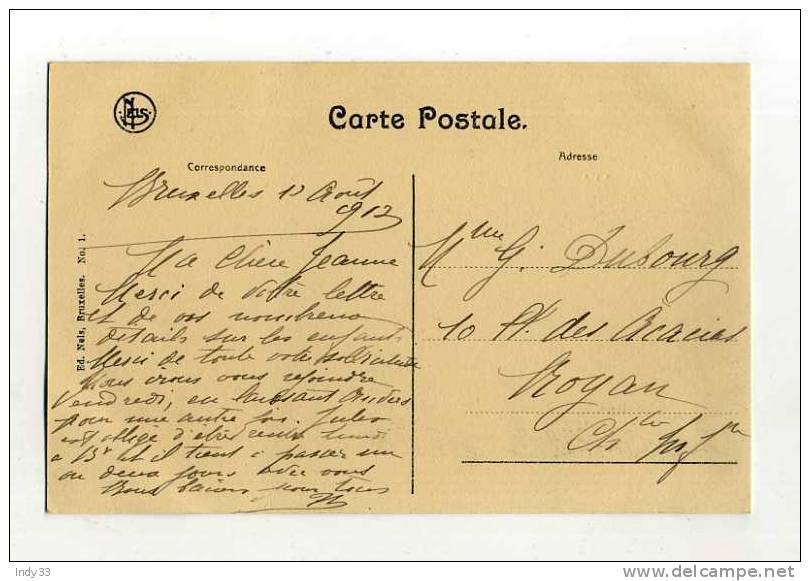 Nels
Carte Postale.
Correspondance
Adresse
Ed. Nels, Bruxelles. No. 1.
Bruxelles 12 Août
1912
Ma chère Jeanne
Merci de votre lettre
et de vos nombreux
détails sur les enfants
Merci de toute votre
Nous irons vous rejoindre
Vendredi, en laissant
pour une autre fois. Jules
est obligé d'être rentré lundi
à 15h et il tient à passer un
ou deux jours avec vous
Bons baisers pour tous
Mme G. Dubourg
10 Av. des Acacias
Royan
Chte Infre
Indy33
www.delcampe.net